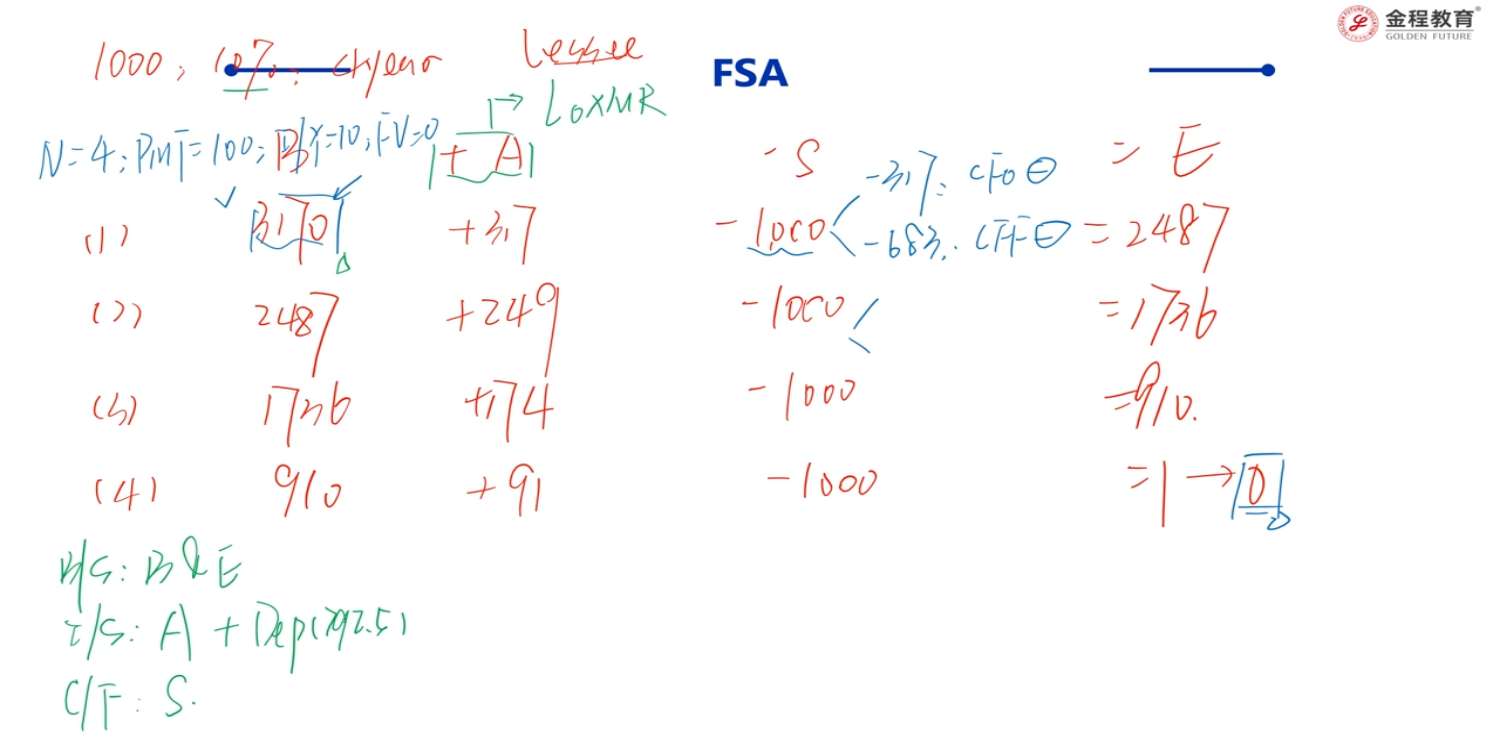 金程教育
GOLDEN FUTURE
FSA
1000, 10%, 4year Lessee
LoxMR
N=4; PMT=100; I/Y=10; FV=0
B + A - S = E
(1) 3170 +317 -1000 = 2487
-317: CFO ⊖
-683: CFF ⊖
(2) 2487 +249 -1000 =1736
(3) 1736 +174 -1000 =910.
(4) 910 +91 -1000 =1→0
B/S: B & E
I/S: A + Dep(792.5)
C/F: S.